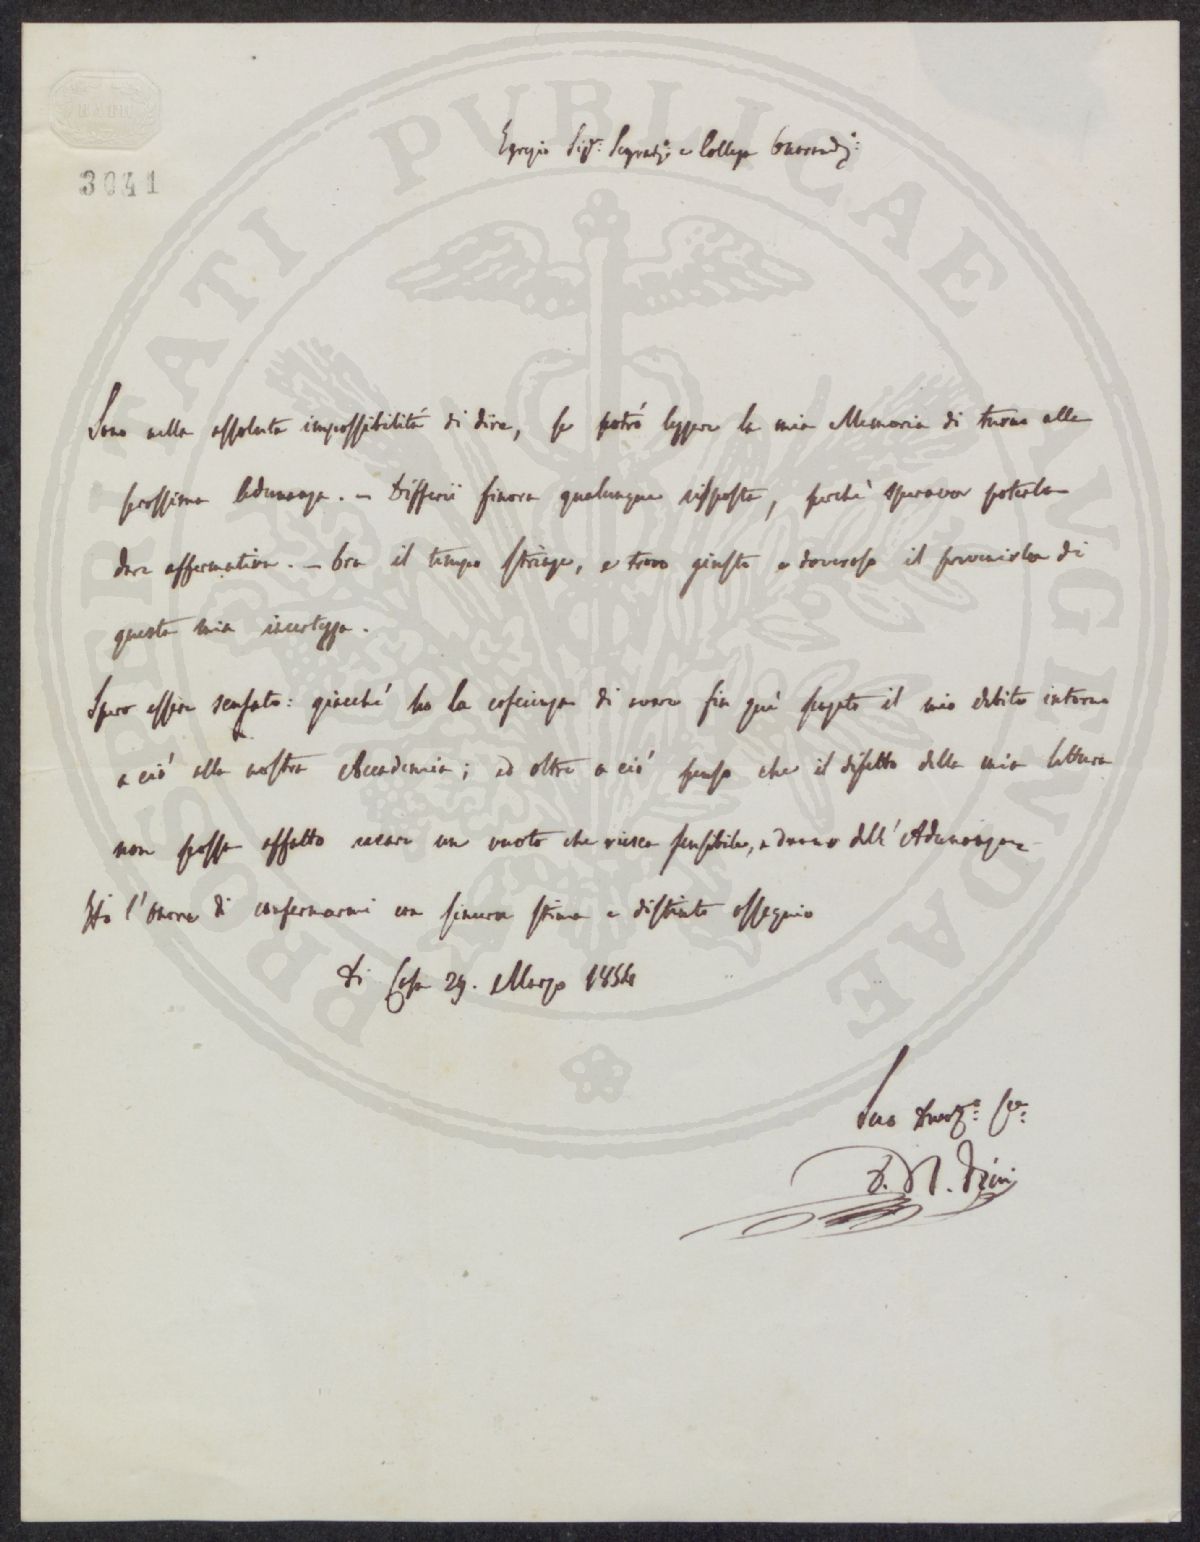 BATH
3041
PROSPERITATI PVBLICAE AVGENDAE
Egregio Sigr. Segretº. e Collega Onorandº:
Sono nella assoluta impossibilitá di dire, se potró leggere la mia Memoria di turno alla
prossima Adunanza. – Differii finora qualunque risposta, perchè speravo poterla
dare affermativa. – Ora il tempo stringe, e trovo giusto e doveroso il prevenirla di
questa mia incertezza.
Spero esser scusato: giacché ho la coscienza di avere fin quì pagato il mio debito intorno
a ció alla nostra Accademia; ed oltre a ció penso che il difetto della mia lettura
non possa affatto recare un vuoto che riesca sensibile, a danno dell'Adunanza –
Ho l'onore di confermarmi con sincera stima e distinto ossequio
Di Casa 29. Marzo 1854
Suo Devotº: